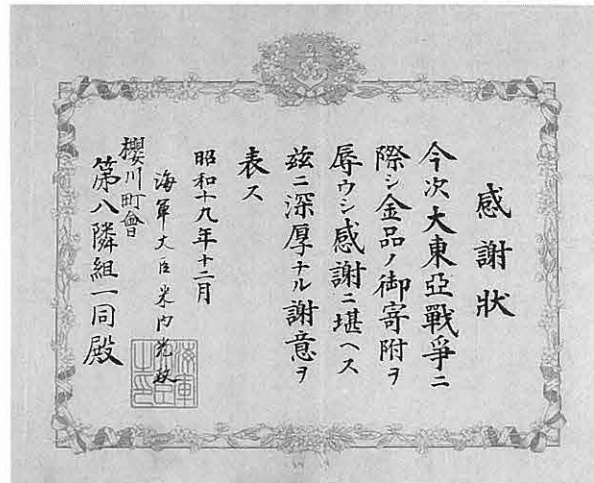 感謝狀
今次大東亞戰爭ニ
際シ金品ノ御寄附ヲ
辱ウシ感謝ニ堪ヘス
茲ニ深厚ナル謝意ヲ
表ス
昭和十九年十二月
海軍大臣米内光政
櫻川町會
第八隣組一同殿
海軍大臣之印